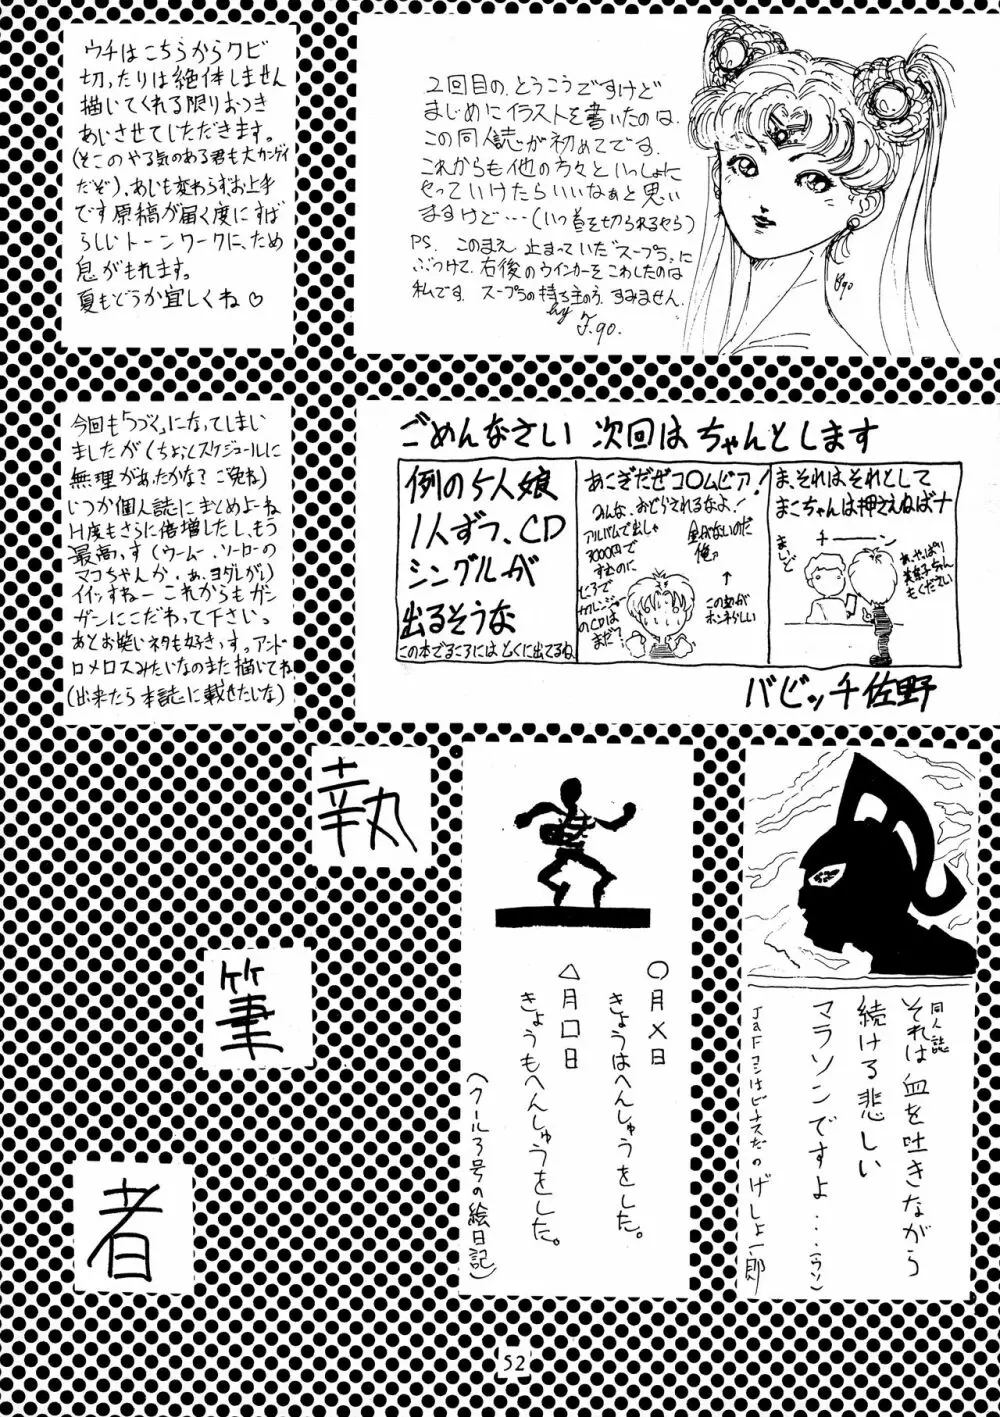 ウチはこちらからクビ
切ったりは絶体しません
描いてくれる限りおつき
あいさせてしただきます。
(そこのやる気のある君も大カンゲイ
だぞ)、あいも変わらずお上手
です原稿が届く度にすば
らしいトーンワークに、ため
息がもれます。
夏もどうか宜しくね♡
2回目の、とうこうですけど
まじめにイラストを書いたのは、
この同人誌が初めてです。
これからも他の方々といっしょに
やっていけたらいいなぁと思い
ますけど…(いつ首を切られるやら)
PS. このまえ止まっていた"スープラ"に
ぶつけて、右後のウインカーをこわしたのは
私です。スープラの持ち主のう、すみません。
by J.go.
今回も「つづく」になってしまい
ましたが(ちょっとスケジュールに
無理があったかな?ご免ね)
いつか個人誌にまとめよーね
H度もさらに倍増したし、もう
最高っす(ウームー、ソーローの
マコちゃんが、あ、ヨダレがり)
イイッすねェー これからもガン
ガンにこだわって下さい。
あとお笑いネタも好きっす。アンド
ロメロスみたいなのまた描いてね
(出来たら本誌に載せたいな)
ごめんなさい 次回は ちゃんとします
例の5人娘
1人ずつ、CD
シングルが
出るそうな
この本でるころにはとくに出てるね
あこぎだぜコ○ムビア!
みんな、おどらされるなよ!
アルバムで出しゃ
3000円で
すむのに
金がないのだ
俺
↑
この辺が
ホンネらしい
ま、それはそれとして
まこちゃんは押さえねばナ
チーン
まいど
あ、やっぱり
美奈子ちゃん
もください
バビッチ佐野
執
筆
者
同人誌
それは血を吐きながら
続ける悲しい
マラソンですよ...(ウソ)
JaFコシはビナスだのげしょ一郎
○月×日
きょうはへんしゅうをした。
△月□日
きょうもへんしゅうをした。
(クール3号の絵日記)
52